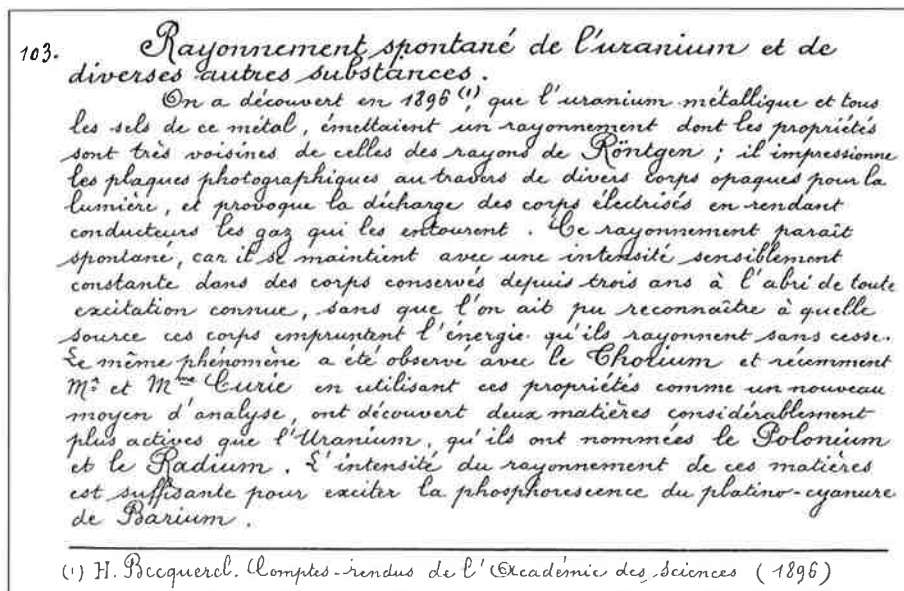 103. Rayonnement spontané de l'uranium et de
diverses autres substances.
On a découvert en 1896 (1), que l'uranium métallique et tous
les sels de ce métal, émettaient un rayonnement dont les propriétés
sont très voisines de celles des rayons de Röntgen ; il impressionne
les plaques photographiques au travers de divers corps opaques pour la
lumière, et provoque la décharge des corps électrisés en rendant
conducteurs les gaz qui les entourent. Ce rayonnement paraît
spontané, car il se maintient avec une intensité sensiblement
constante dans des corps conservés depuis trois ans à l'abri de toute
excitation connue, sans que l'on ait pu reconnaître à quelle
source ces corps empruntent l'énergie qu'ils rayonnent sans cesse.
Le même phénomène a été observé avec le Thorium et récemment
Mr et Mme Curie en utilisant ces propriétés comme un nouveau
moyen d'analyse, ont découvert deux matières considérablement
plus actives que l'Uranium, qu'ils ont nommées le Polonium
et le Radium. L'intensité du rayonnement de ces matières
est suffisante pour exciter la phosphorescence du platino-cyanure
de Barium.
(1) H. Becquerel. Comptes-rendus de l'Académie des Sciences (1896)